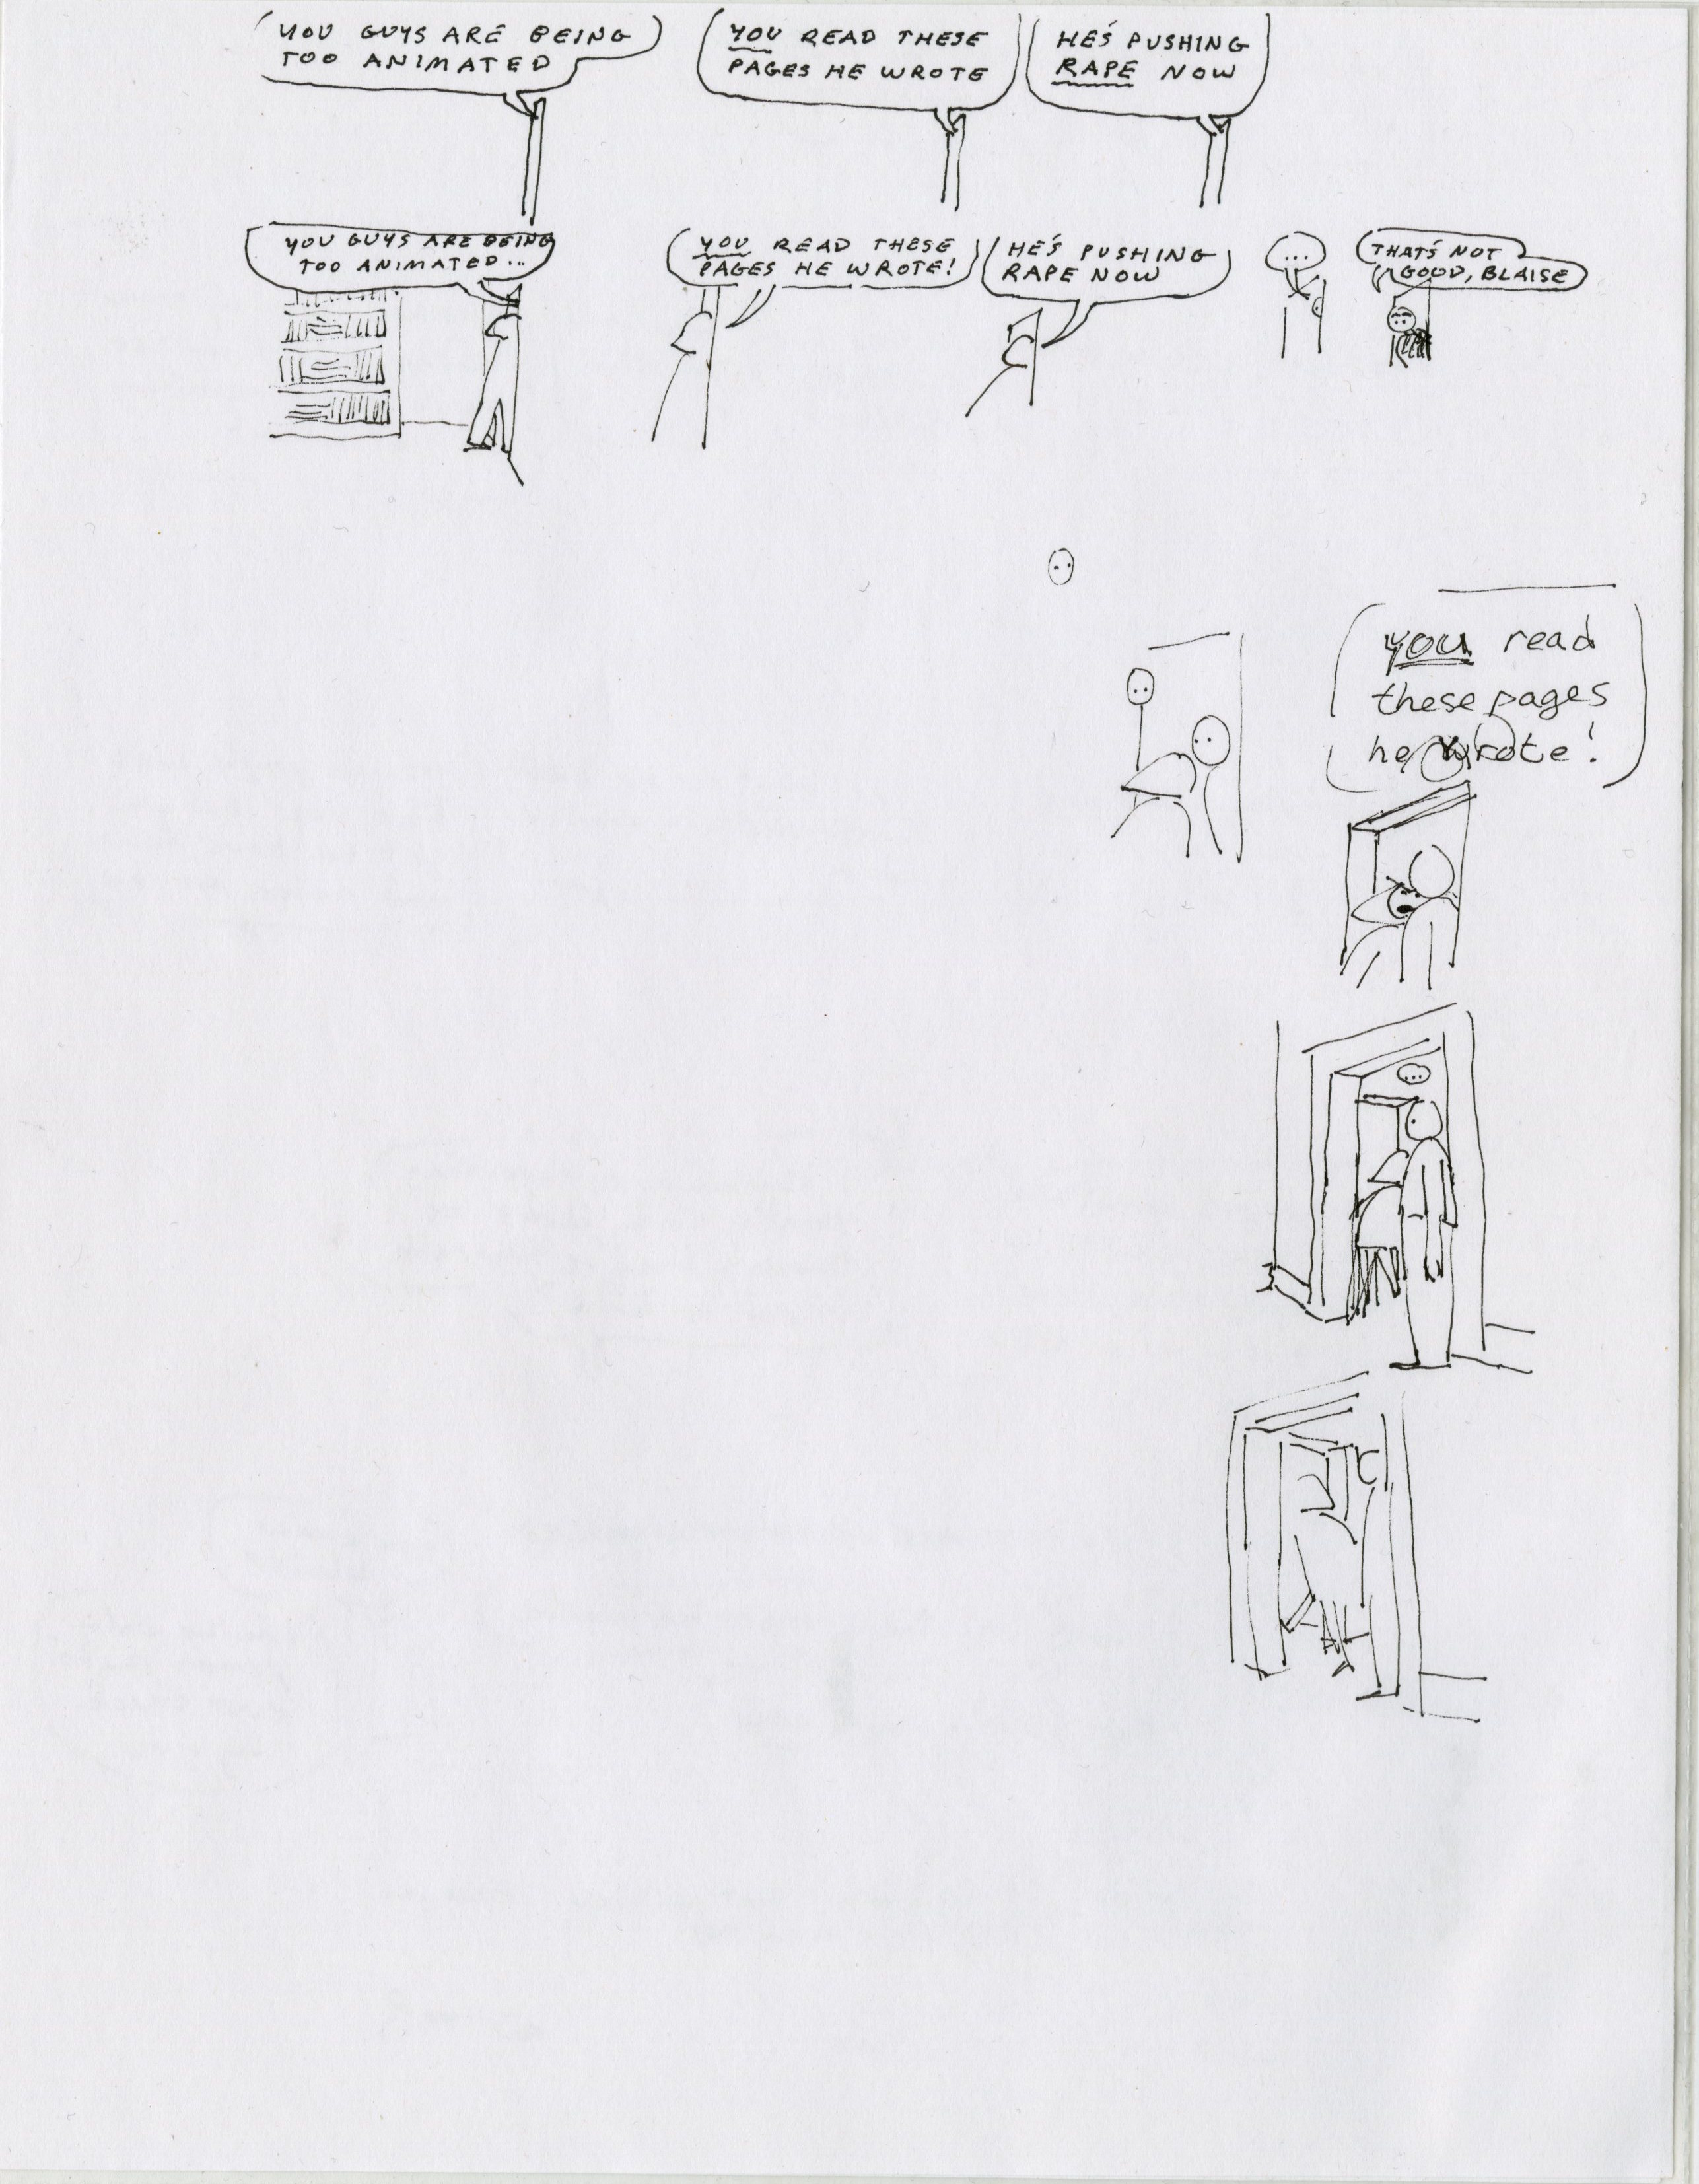 YOU GUYS ARE BEING
TOO ANIMATED
YOU READ THESE
PAGES HE WROTE
HE'S PUSHING
RAPE NOW
YOU GUYS ARE BEING
TOO ANIMATED...
YOU READ THESE
PAGES HE WROTE!
HE'S PUSHING
RAPE NOW
...
THAT'S NOT
GOOD, BLAISE
you read
these pages
he wrote!
...